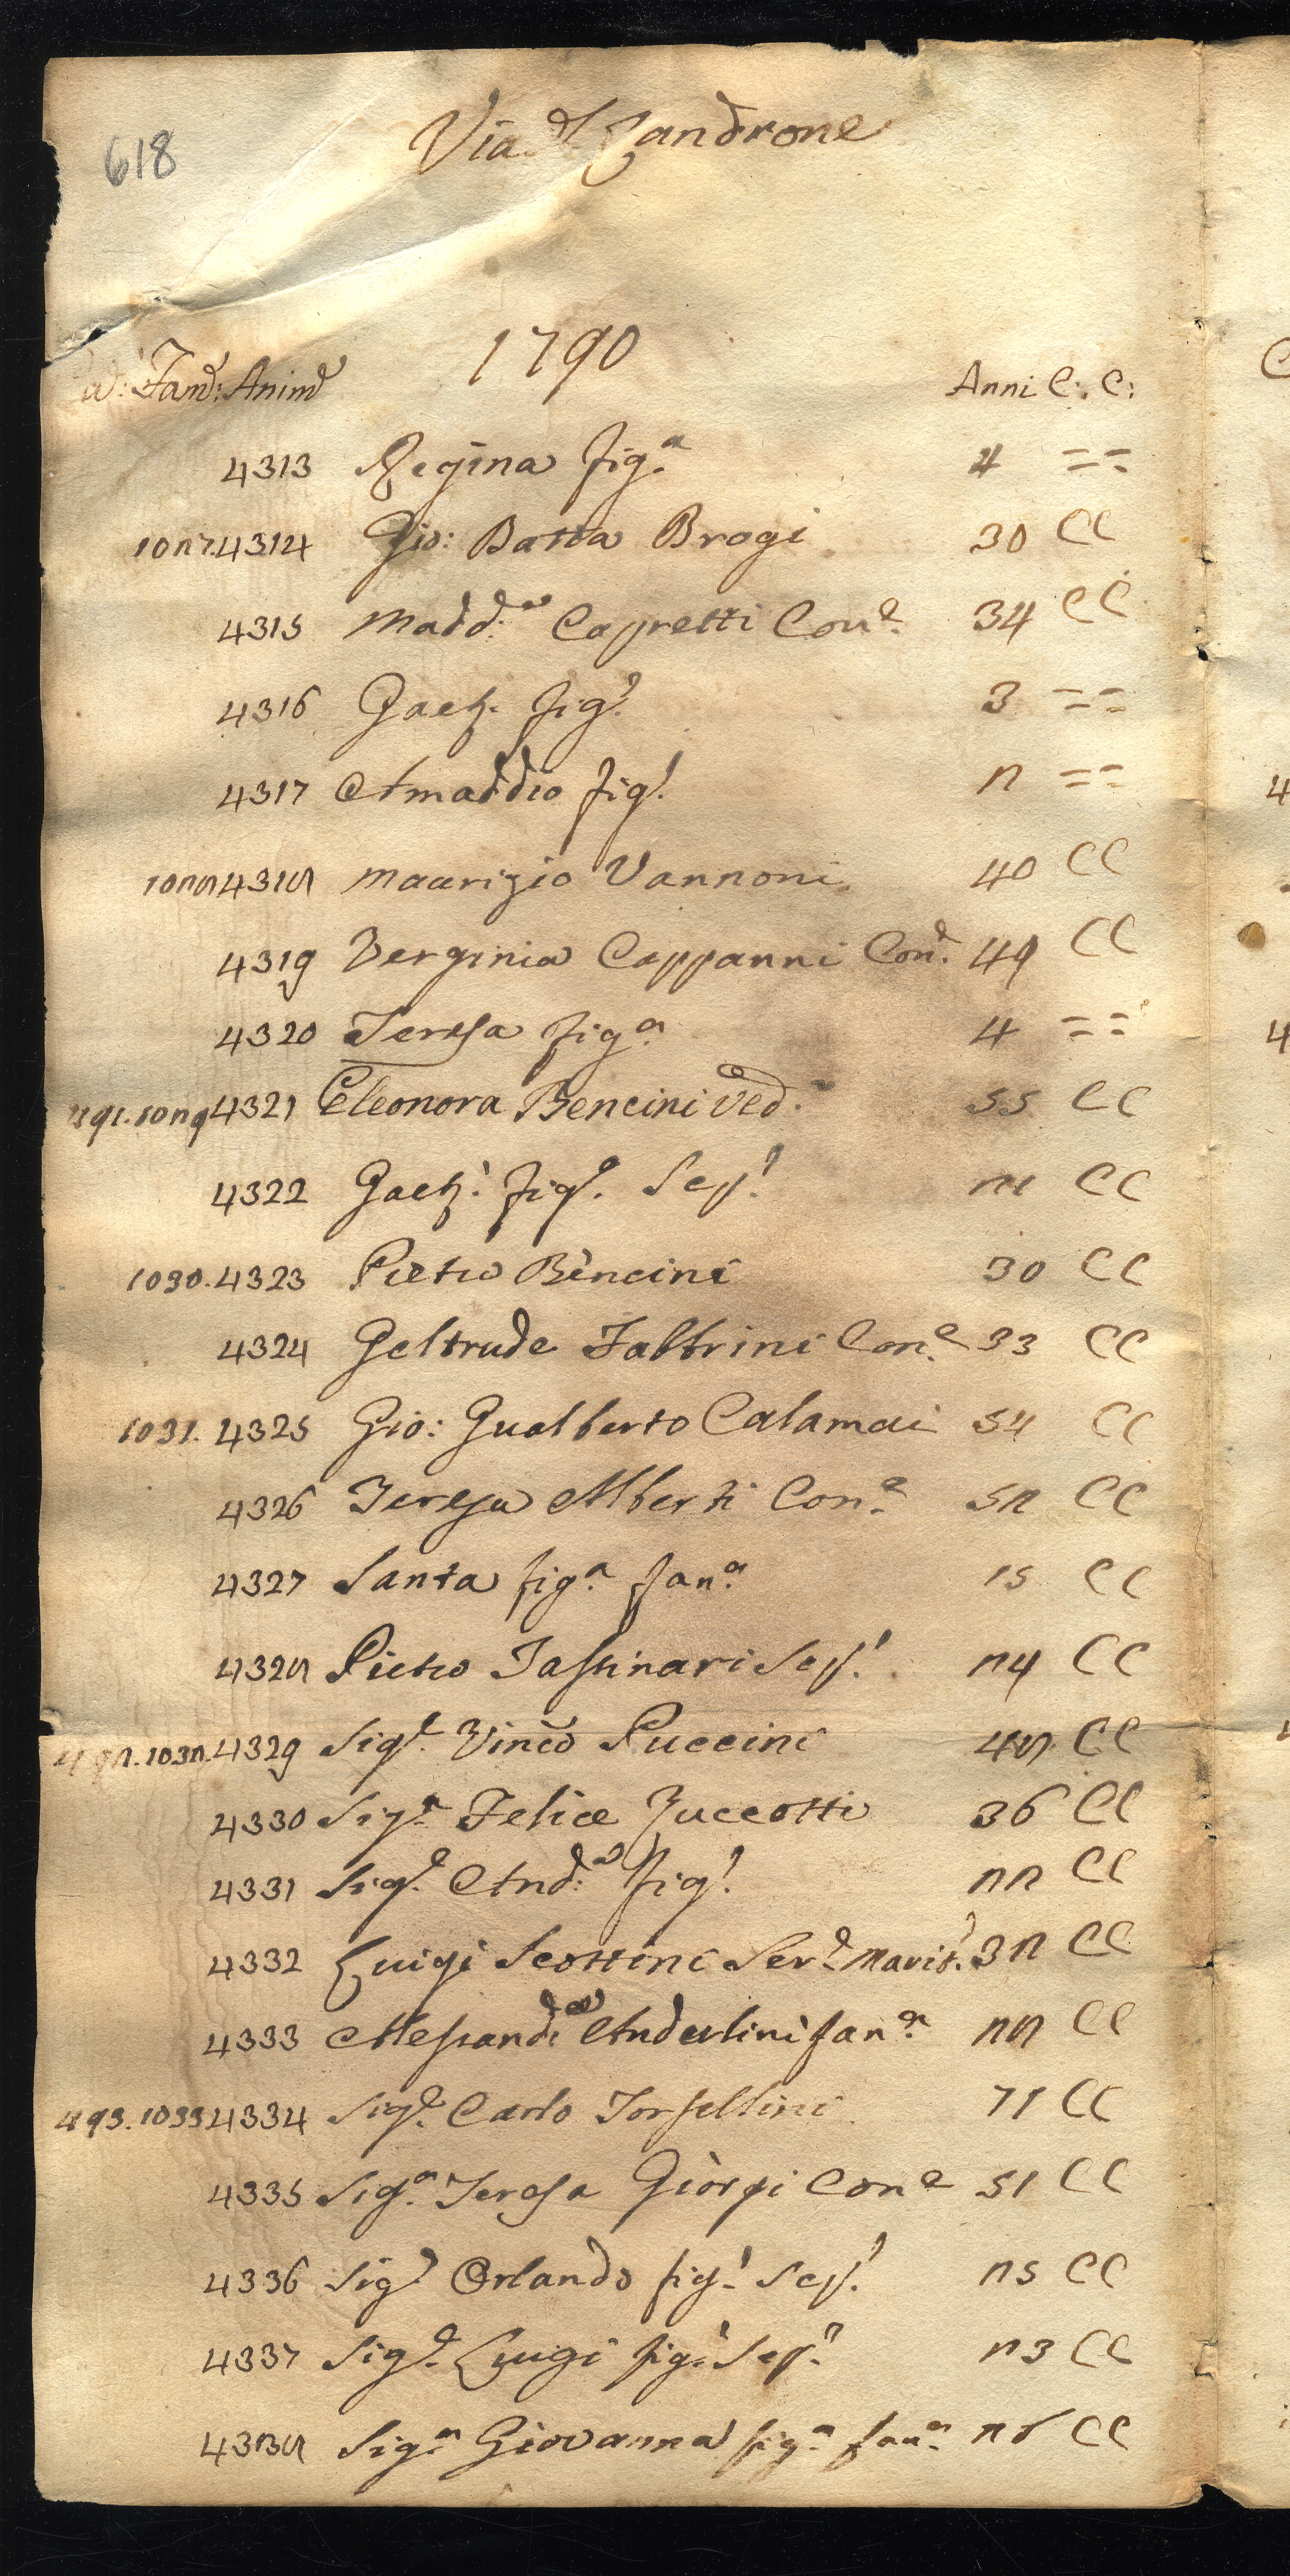 618
Via d. Landrone
1790
Fam: Anime Anni C: C:
4313 Regina fig.a 4 = =
1027.4314 Gio: Batta Brogi 30 C C
4315 Madd:a Capretti Con.e 34 C C
4316 Gaet.o fig.o 3 = =
4317 Amaddio fig.o 2 = =
1028 4318 Maurizio Vannoni 40 C C
4319 Verginia Cappanni Con.e 49 C C
4320 Teresa fig.a 4 = =
491.1029 4321 Eleonora Bencini Ved.a 55 C C
4322 Gaet.o fig.o Scap.o 21 C C
1030.4323 Pietro Bencini 30 C C
4324 Geltrude Fabbrini Con.e 33 C C
1031. 4325 Gio: Gualberto Calamai 54 C C
4326 Teresa Alberti Con.e 52 C C
4327 Santa fig.a fan.a 15 C C
4328 Pietro Tassinari Scap.o 24 C C
492.1032.4329 Sig.e Vinc.o Puccini 48 C C
4330 Sig.a Felice Zuccotti 36 C C
4331 Sig.e And:a fig.o 22 C C
4332 Luigi Scottini Ser.e Marit.o 32 C C
4333 Alessand:a Anderlini fan.a 28 C C
493.1033 4334 Sig.e Carlo Torsellini 71 C C
4335 Sig.a Teresa Giorgi Con.e 51 C C
4336 Sig.e Orlando fig.o Scap.o 25 C C
4337 Sig.e Luigi fig.o Scap.o 23 C C
4338 Sig.a Giovanna fig.a fan.a 26 C C